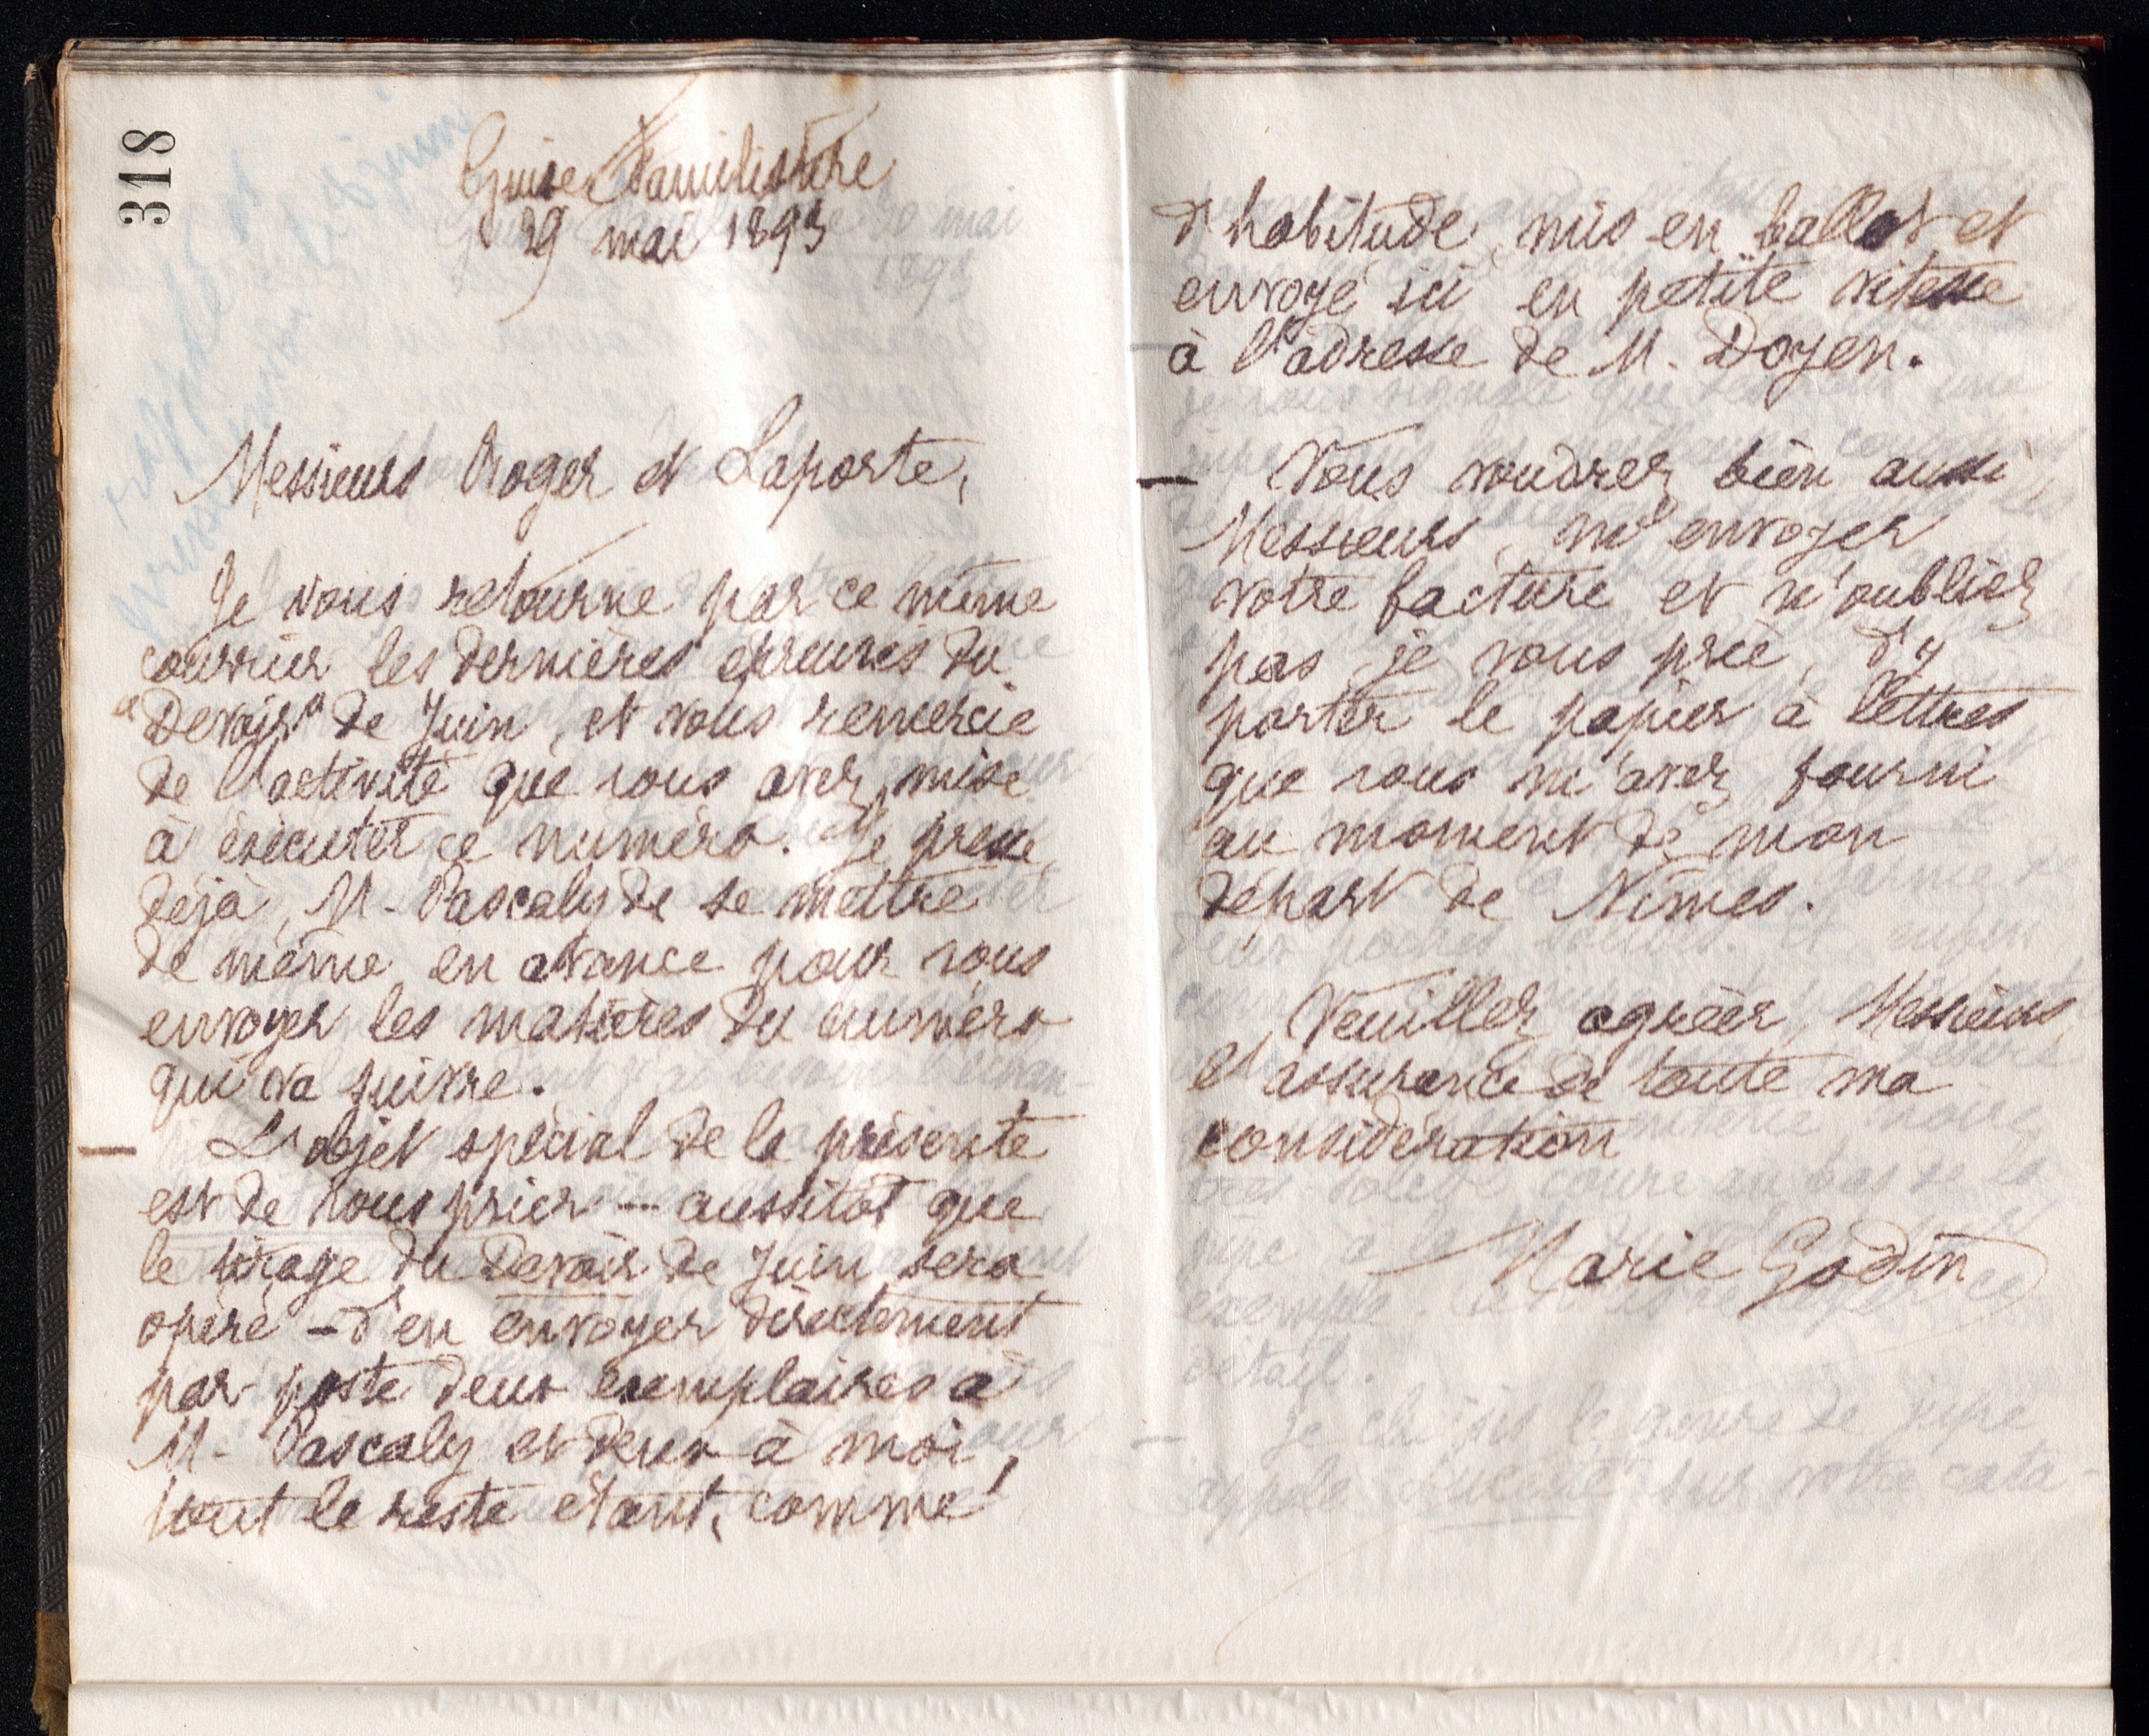 318
Guise Familistère
29 mai 1893
Messieurs Roger et Laporte,
Je vous retourne par ce même
courrier les dernières épreuves du
"Devoir" de Juin, et vous remercie
de l'activité que vous avez mise
à exécuter ce numéro. Je presse,
déjà, M. Pascaly de se mettre
de même en avance pour vous
envoyer les matières du numéro
qui va suivre.
— L'objet spécial de la présente
est de vous prier — aussitôt que
le tirage du Devoir de Juin sera
opéré — d'en envoyer directement
par poste deux exemplaires à
M. Pascaly et deux à moi,
tout le reste étant, comme
d'habitude, mis en ballot et
envoyé ici en petite vitesse
à l'adresse de M. Doyen.
— Vous voudrez bien aussi,
Messieurs, m'envoyer
votre facture et n'oubliez
pas, je vous prie, d'y
porter le papier à lettres
que vous m'avez fourni
au moment de mon
départ de Nîmes.
Veuillez agréer, Messieurs,
l'assurance de toute ma
considération
Marie Godin